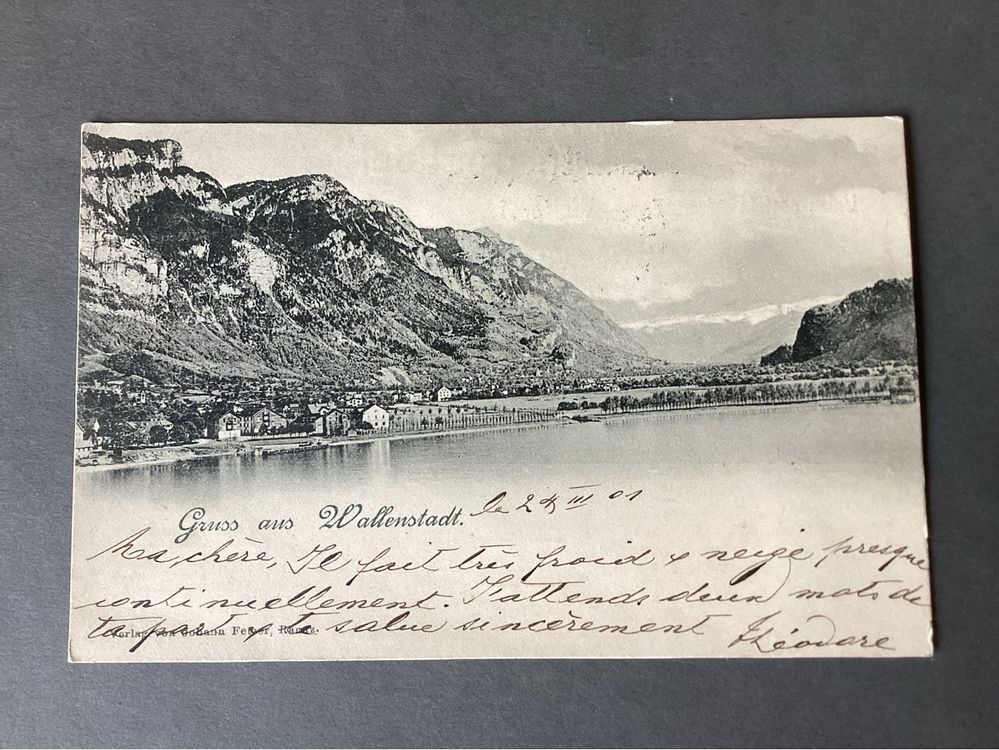 Gruss aus Wallenstadt. le 24 III 01
Ma chère, Il fait très froid & neige presque
continuellement. J'attends deux mots de
ta part & te salue sincèrement Théodore
Verlag von Johann Fetzer, Ragaz.